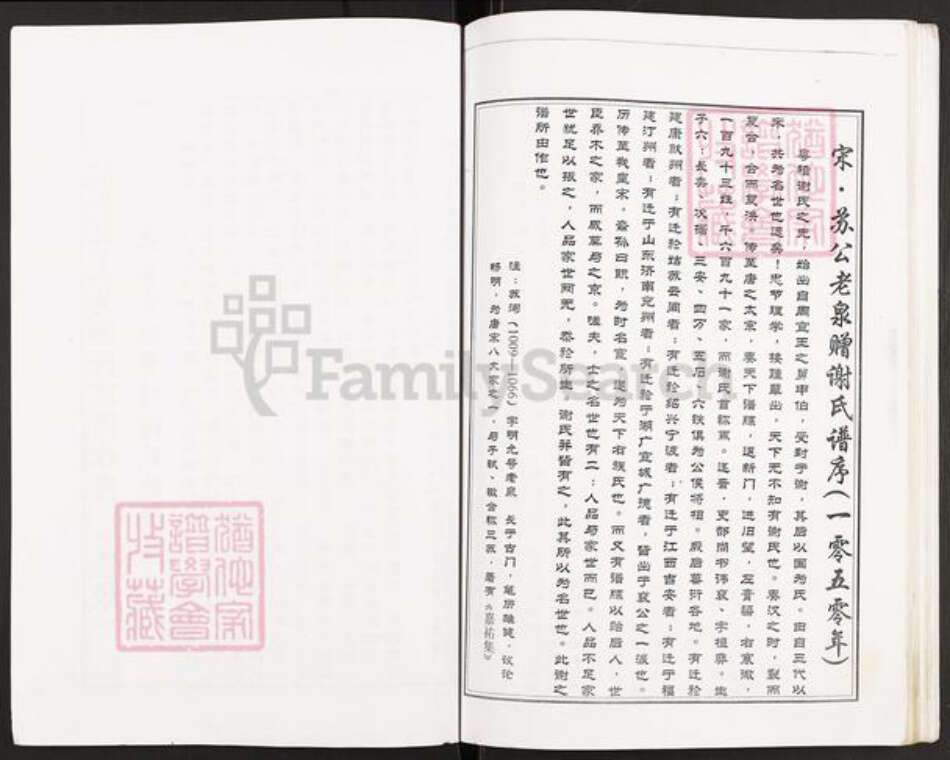 宋·苏公老泉赠谢氏谱序(一零五零年)
粤稽谢氏之先，始出自周宣王之舅申伯，受封于谢，其后以国为氏。由自三代以
宋，共为名世也远矣！忠节理学，接踵辈出，天下无不知有谢氏也。秦汉之时，裂而
复合，合而复洪。传至唐之太宗，奏天下谱牒，退新门，进旧望，左膏粱，右寒微，
一百九十三姓，千六百九十一家，而谢氏首称焉。逮晋，吏部尚书讳裒、字祖舜。生
子六：长奕、次据、三安、四万、五石、六铁俱为公侯将相。厥后蕃衍各地。有迁于
建康敦州者；有迁于姑苏云间者；有迁于绍兴宁波者；有迁于江西吉安者；有迁于福
建汀州者；有迁于山东济南兖州者；有迁于湖广宣城广德者，皆出于裒公之一派也。
历传至我皇宋，裔孙曰
，为时名宦，遂为天下右族氏也。而又有谱牒以贻后人，世
臣乔木之家，而咸莫与之京。嗟夫，士之名世也有二：人品与家世而已。人品不足家
世犹足以振之，人品家世两无，泰于所生，谢氏并皆有之，此其所以为名世也。此谢之
谱所由作也。
注：苏洵(1009—1066)字明允号老泉 长于古门，笔历雄健，议论
畅明，为唐宋八大家之一，与子轼、辙合称三苏，着有《嘉祐集》
猶他家
譜學會
收藏
猶他家
譜學會
收藏
FamilySearch